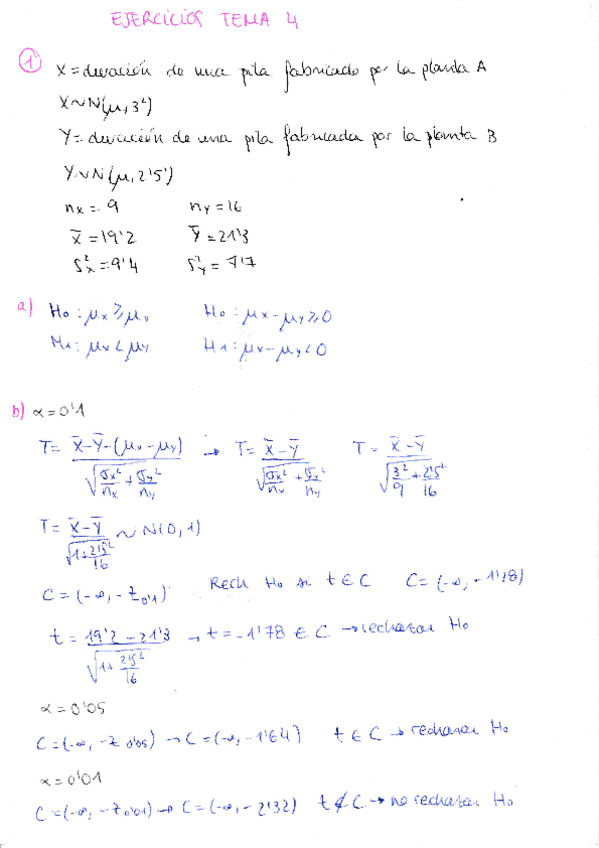 EJERCICIOS TEMA 4
1 X = duración de una pila fabricado por la planta A
X∼N(μ, 3²)
Y = duración de una pila fabricada por la planta B
Y∼N(μ, 2'5²)
nx = 9 ny = 16
X̄ = 19'2 Ȳ = 21'3
S²x = 9'4 S²y = 7'7
a) H₀: μx ≥ μy H₀: μx − μy ≥ 0
H₁: μx < μy H₁: μx − μy < 0
b) α = 0'1
T = (X̄ − Ȳ − (μx − μy)) / √(σx²/nx + σy²/ny) → T = (X̄ − Ȳ) / √(σx²/nx + σy²/ny) T = (X̄ − Ȳ) / √(3²/9 + 2'5²/16)
T = (X̄ − Ȳ) / √(1 + 2'5²/16) ∼ N(0, 1)
C = (−∞, −z₀'₁) Rech H₀ si t ∈ C C = (−∞, −1'28)
t = (19'2 − 21'3) / √(1 + 2'5²/16) → t = −1'78 ∈ C → rechazar H₀
α = 0'05
C = (−∞, −z₀'₀₅) → C = (−∞, −1'64) t ∈ C → rechazar H₀
α = 0'01
C = (−∞, −z₀'₀₁) → C = (−∞, −2'32) t ∉ C → no rechazar H₀